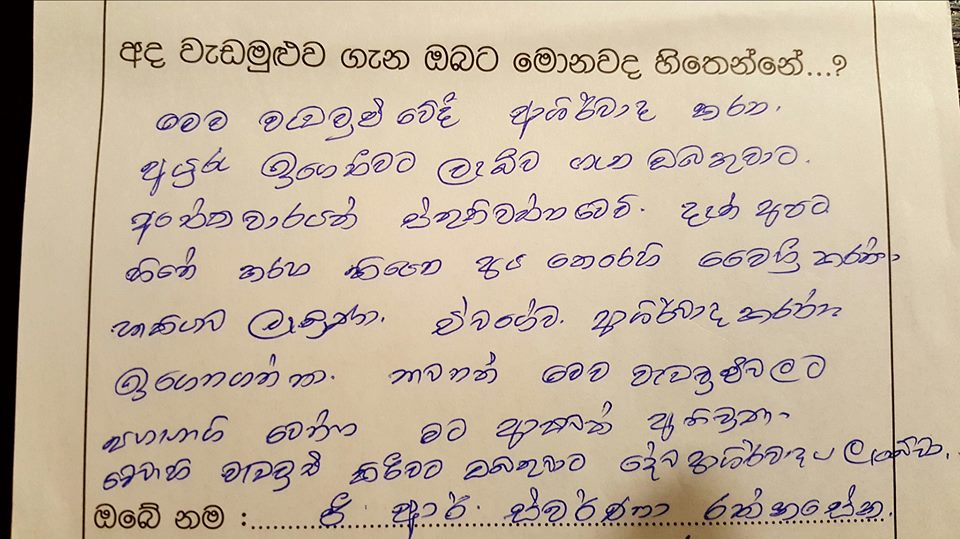 අද වැඩමුළුව ගැන ඔබට මොනවද හිතෙන්නේ...?
මෙම වැඩමුළුවේදී ආශිර්වාද කරන
අයුරු ඉගෙනීමට ලැබීම ගැන ඔබතුමාට
අනේක වාරයක් ස්තුතිවන්ත වෙමි. දැන් අපට
හිතේ තරහ තියෙන අය කෙරෙහි මෛත්‍රී කරන්න
හැකියාව ලැබුණා. ඒවගේම ආශිර්වාද කරන්න
ඉගෙනගත්තා. තවත් මෙම වැඩමුළුවලට
සහභාගි වෙන්න මට ආසාවක් ඇතිවුනා.
මෙවැනි වැඩමුළු කිරීමට ඔබතුමාට දේව ආශිර්වාදය ලැබේවා.
ඔබේ නම : ජී ආර් ස්වර්ණා රත්නසේන.